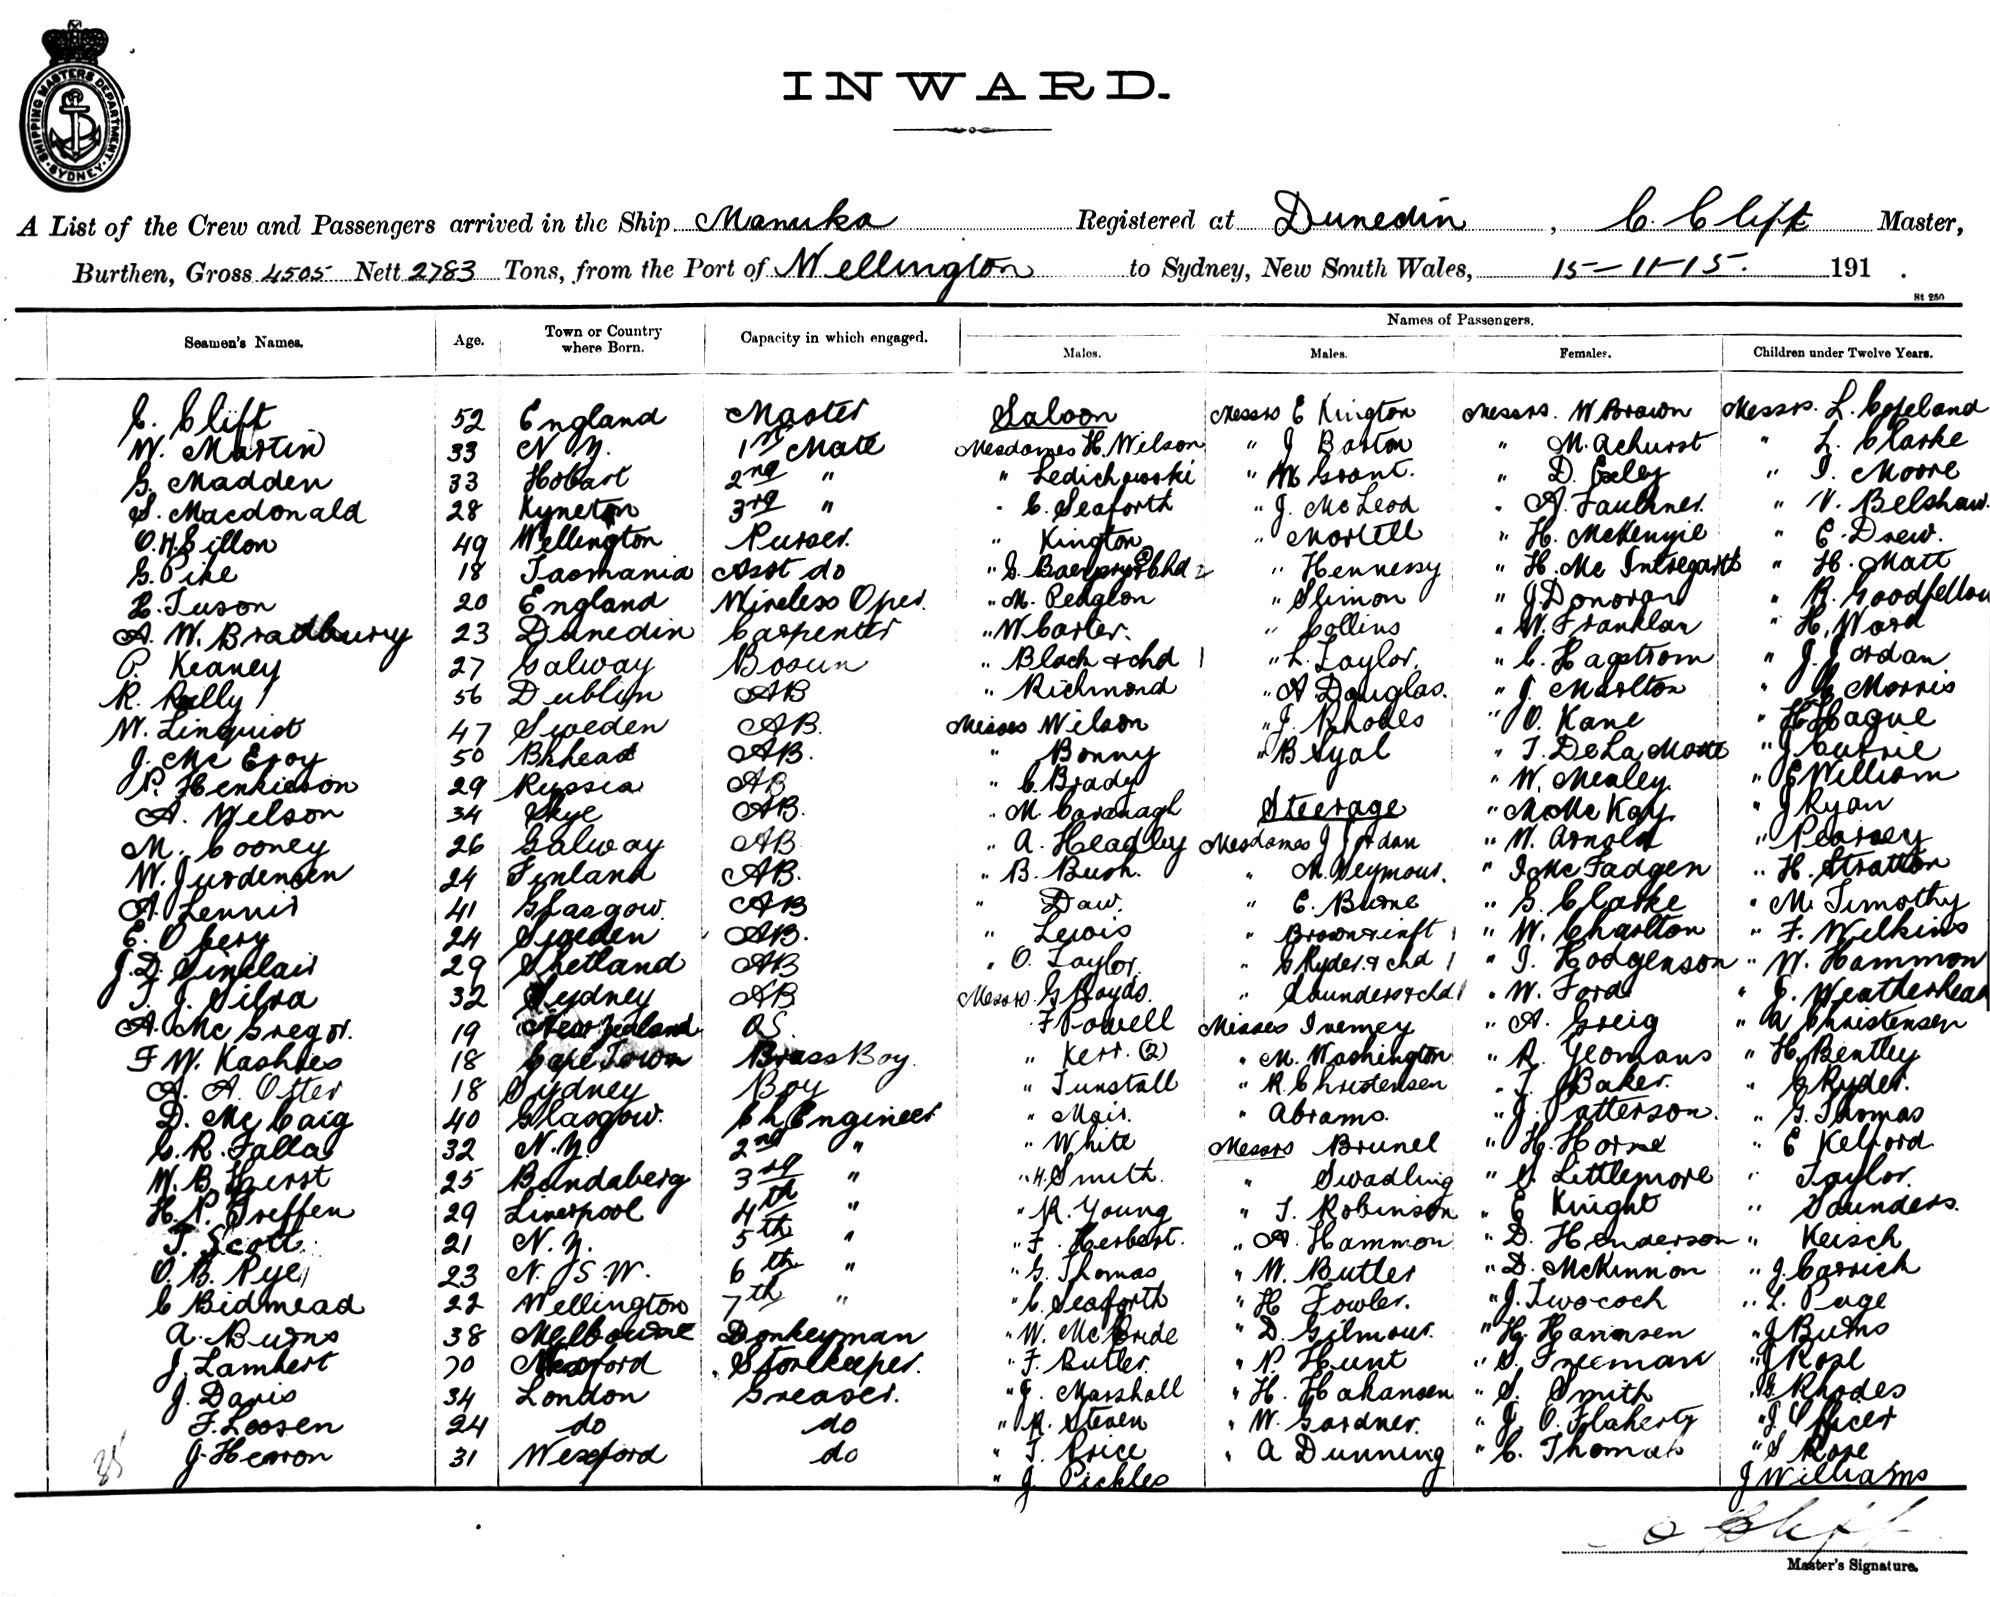 SHIPPING MASTERS DEPARTMENT
SYDNEY
INWARD.
A List of the Crew and Passengers arrived in the Ship Manuka Registered at Dunedin, C. Clift Master,
Burthen, Gross 4505 Nett 2783 Tons, from the Port of Wellington to Sydney, New South Wales, 15-11-15. 191 .
St 250
Names of Passengers.
Seamen's Names. Age. Town or Country where Born. Capacity in which engaged. Males. Males. Females. Children under Twelve Years.
C. Clift 52 England Master Saloon Messrs E Kington Messrs. W Brown Messrs. L. Copeland
W. Martin 33 N Z. 1st Mate Mesdames H. Wilson " J Barton " M. Achurst " L. Clarke
G. Madden 33 Hobart 2nd " " Ledichowski " W Grant. " D. Exley " T. Moore
S. Macdonald 28 Kyneton 3rd " " C. Seaforth " J. McLeod " A. Faulkner. " V. Belshaw.
O. H. Sillon 49 Wellington Purser. " Kington " Mortell " H. McKenzie " E. Drew.
G. Pike 18 Tasmania Asst do " Hennessy " " H. Matt
L. Tuson 20 England Wireless Oper. " M. Pedglon " Slimon " J. Donovan " R. Goodfellow
A. W. Bradbury 23 Dunedin Carpenter " W Carter. " Collins " W. Franklar " H. Ward
P. Keaney 27 Galway Bosun " Black & chd 1 " L. Taylor. " C. Hagstrom " J. Jordan
R. Reilly 56 Dublin AB " Richmond " A Douglas. " J. Marlton " Morris
W. Linquist 47 Sweden AB. Misses Wilson " J. Rhodes " O. Kane " H Hague
J. Mc Eroy 50 Bkhead AB. " Bonny " B Syal " T. De La Motte " J Currie
P. Henkieson 29 Russia AB " C. Brady " W. Mealey. " E William
A. Nelson 34 Skye AB. " M. Cavanagh Steerage " M. McKay. " J Ryan
M. Cooney 26 Galway AB. " A. Headley Mesdames J Jordan " W. Arnold " Pearsey
W. Jurdensen 24 Finland AB. " B. Bush. " M. Seymour. " J. McFadgen " H. Stratton
A. Lennis 41 Glasgow. AB " Daw. " E. Burne " G. Clarke " M. Timothy
E. Obery 24 Sweden AB. " Lewis " Brown & inft 1 " W. Charlton " F. Wilkins
J. D. Sinclair 29 Shetland AB " O. Taylor. " G Ryder. & chd 1 " T. Hodgenson " W. Hammon
T. J. Silva 32 Sydney AB Messrs. G Boyds. " Saunders & chd 1 " W. Ford " Weatherhead
A. McGregor. 19 New Zealand OS. F Powell Misses Ivemey " A. Greig " A Christensen
F W. Kashies 18 Cape Town Brass Boy. " Kerr. (2) " M. Washington " R. Yeomans " H. Bentley
A. A. Otter 18 Sydney Boy " Tunstall " R. Christensen " T. Baker. " G Ryder.
D. McCaig 40 Glasgow. Ch Engineer " Moir. " Abrams. " J. Patterson. " G. Thomas
C. R. Falla 32 N. Z. 2nd " " White Messrs Brunel " H. Horne " E Kelford
W. B Hurst 25 Bundaberg 3rd " " H. Smith. " Swadling " S. Littlemore " Taylor.
H. P. Treffen 29 Liverpool 4th " " R. Young " T. Robinson " E Knight " Saunders.
T. Scott. 21 N. Z. 5th " " F. Herbert. " A. Hammon " D. Henderson " Keisch
O. B. Pye 23 N. S. W. 6th " " G. Thomas " W. Butler " D. McKinnon " J. Carrick
C Bidmead 22 Wellington 7th " " C. Seaforth " H Fowler. " J. Twocock " L. Page
A. Burns 38 Melbourne Donkeyman " W. McBride " D. Gilmour. " H. Hannsen " J Burns
J. Lambert 70 Storekeeper. " F. Butler. " P. Hunt " S. Freeman " J Rose
J. Davis 34 London Greaser. " J. Marshall " H. Hahansen " S. Smith " G Rhodes
F. Loosen 24 do do " R. Steven " W. Gardner. " J. O. Flaherty " J. Officer
35 J. Herron 31 Wexford do " T. Price " A Dunning " C. Thomas " S Rose
" J. Pickles J Williams
C Clift
Master's Signature.